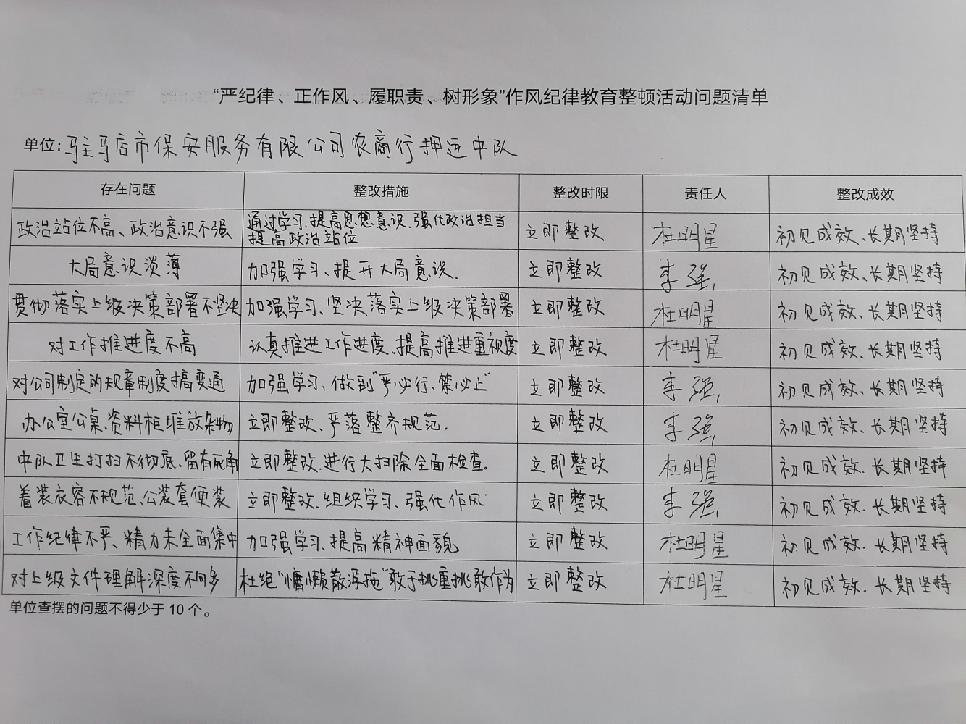 “严纪律、正作风、履职责、树形象”作风纪律教育整顿活动问题清单
单位:驻马店市保安服务有限公司农商行押运中队
存在问题 整改措施 整改时限 责任人 整改成效
政治站位不高、政治意识不强 通过学习提高思想意识、强化政治担当
提高政治站位 立即整改 杜明星 初见成效、长期坚持
大局意识淡薄 加强学习、提升大局意识. 立即整改 李强 初见成效、长期坚持
贯彻落实上级决策部署不坚决 加强学习、坚决落实上级决策部署 立即整改 杜明星 初见成效、长期坚持
对工作推进度不高 认真推进工作进度、提高推进重视度 立即整改 杜明星 初见成效、长期坚持
对公司制定的规章制度搞变通 加强学习、做到“令必行、禁必止” 立即整改 李强 初见成效、长期坚持
办公室公桌.资料柜堆放杂物 立即整改、严落整齐规范. 立即整改 李强 初见成效、长期坚持
中队卫生打扫不彻底、留有死角 立即整改.进行大扫除全面检查。 立即整改 杜明星 初见成效、长期坚持
着装衣容不规范.公装套便装 立即整改.组织学习、强化作风 立即整改 李强 初见成效、长期坚持
工作纪律不严、精力未全面集中 加强学习、提高精神面貌 立即整改 杜明星 初见成效、长期坚持
对上级文件理解深度不同多 杜绝“慵懒散浮拖”敢于挑重挑敢作为 立即整改 杜明星 初见成效、长期坚持
单位查摆的问题不得少于 10 个。